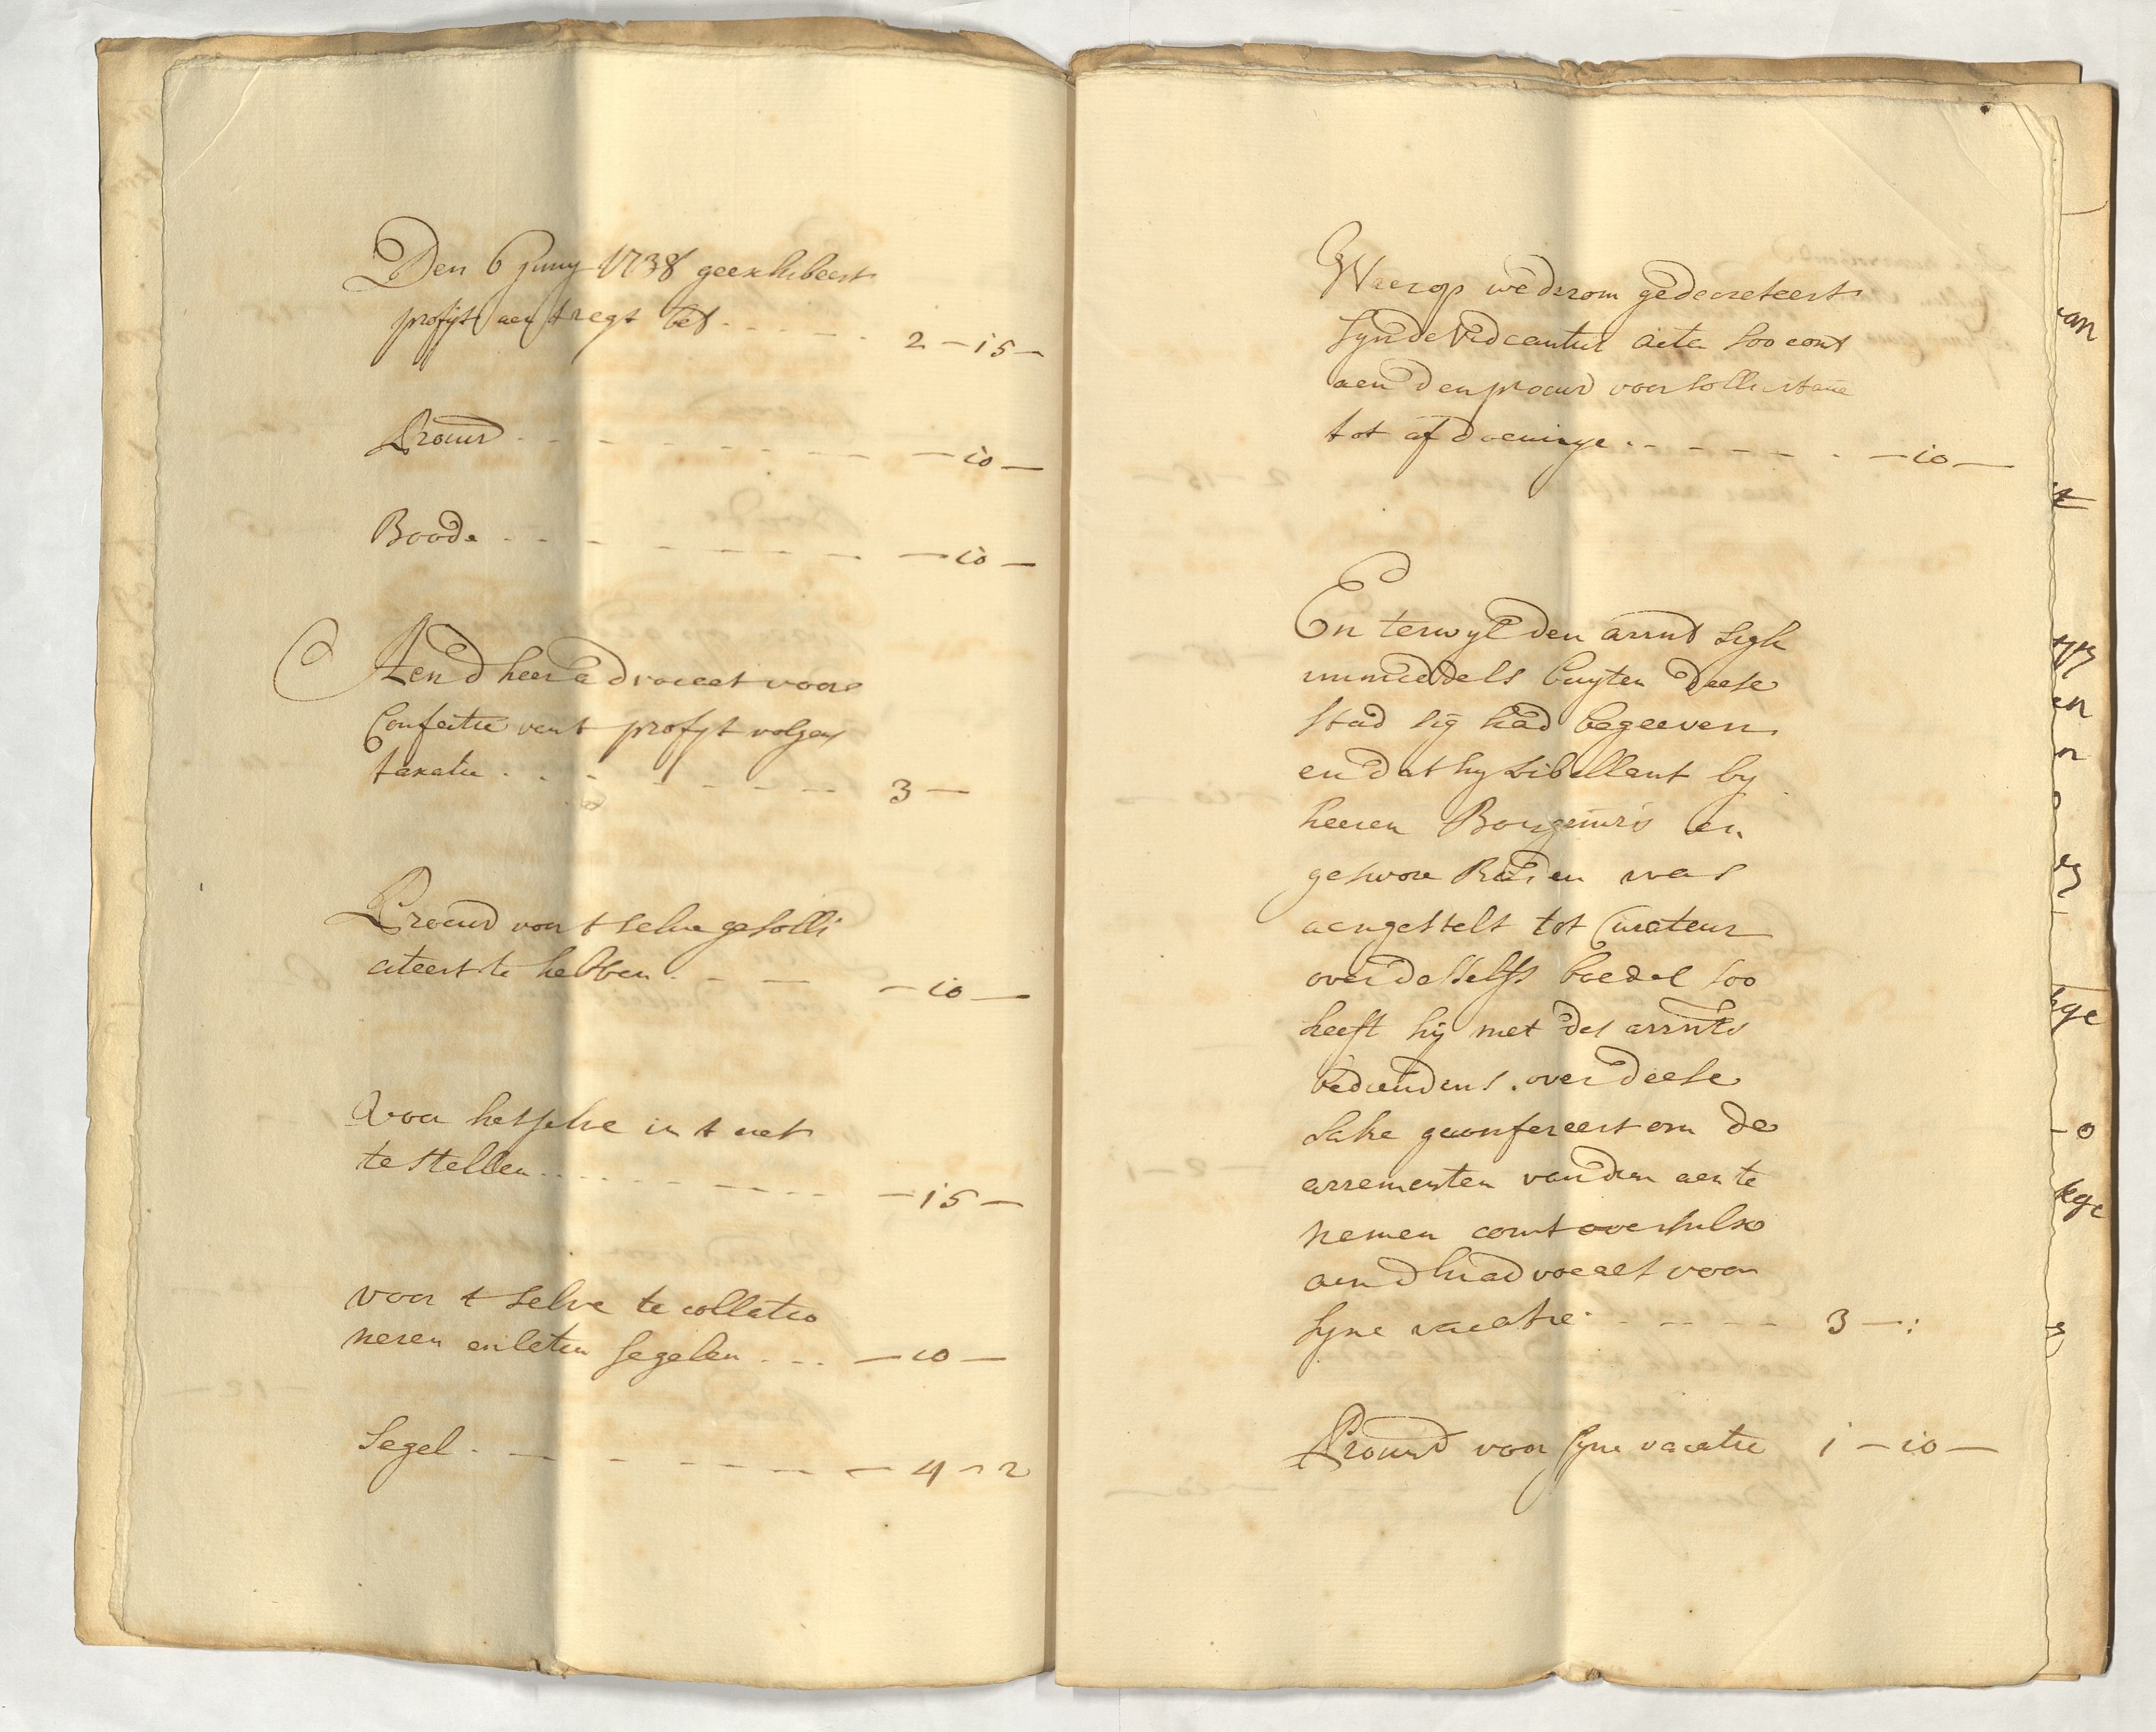 Den 6 Juny 1738 geexhibeert
profijt aen t regt bet . . . . 2 - 15 -
Procur̄ . . . . - 10 -
Boode . . . . - 10 -
Aen d heer advocaet voor
Confectie vant profijt volgens
taxatie . . . . 3 -
Procur̄ voor t selve gesolli
citeert te hebben . . . . - 10 -
Voor hetselve in t net
te stellen . . . . - 15 -
voor t selve te collatio
neren en leten segelen . . . - 10 -
Segel . . . . - 4 - 2
Waerop wederom gedecreteert
synde Videantur acta soo comt
aen den procur̄ voor sollicitatie
tot afdoeninge . . . . - 10 -
En terwyl den arrnt sigh
inmiddels buyten deese
stad sig had begeeven
en dat hy libellant by
heeren Borgemrs en
geswore Raden was
aengestelt tot Curateur
over desselfs boedel soo
heeft hij met des arrnts
bediendens over deese
sake geconfereert om de
arrementen van dien aen te
nemen comt oversulx
aen d hr advocaet voor
syne vacatie . . . . 3 - :
Procur̄ voor syne vacatie 1 - 10 -